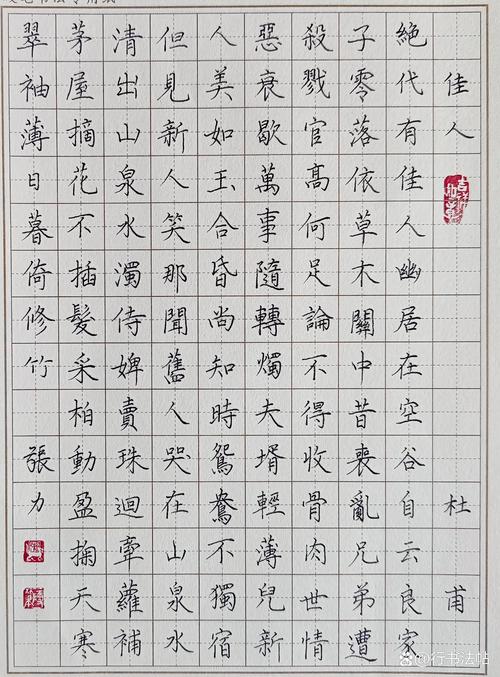 佳人 杜甫
絕代有佳人幽居在空谷自云良家
子零落依草木關中昔喪亂兄弟遭
殺戮官高何足論不得收骨肉世情
惡衰歇萬事隨轉燭夫壻輕薄兒新
人美如玉合昏尚知時鴛鴦不獨宿
但見新人笑那聞舊人哭在山泉水
清出山泉水濁侍婢賣珠迴牽蘿補
茅屋摘花不插髮采柏動盈掬天寒
翠袖薄日暮倚修竹 張力
@行书法帖